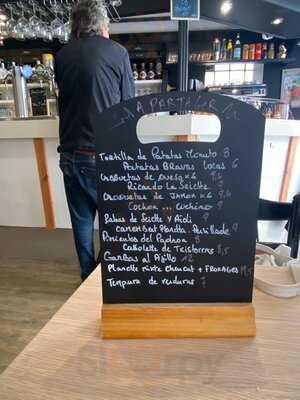 A PARTAGER
Tortilla de Patatas Minuto 8
Patatas Bravas Locas 6
Croquetas de Queso x6 9,6
Ricardo La Seiche 9
Croquetas de Jamon x6 9,6
Cochon ... Cuchino 9
Palas de Seiche y Aioli 9
Camembert Planxa 9
Pimientos del Padron 8
Cassolette de Txistorras 8,5
Gambas al Ajillo 12
Planche mixte Charcut + Fromages
Tempura de verduras 7